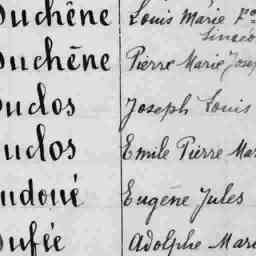 Duchêne Louis Marie F
Duchêne Pierre Marie Josep
Duclos Joseph Louis
Duclos Emile Pierre Mar
Dudoué Eugène Jules
Dufée Adolphe Mari